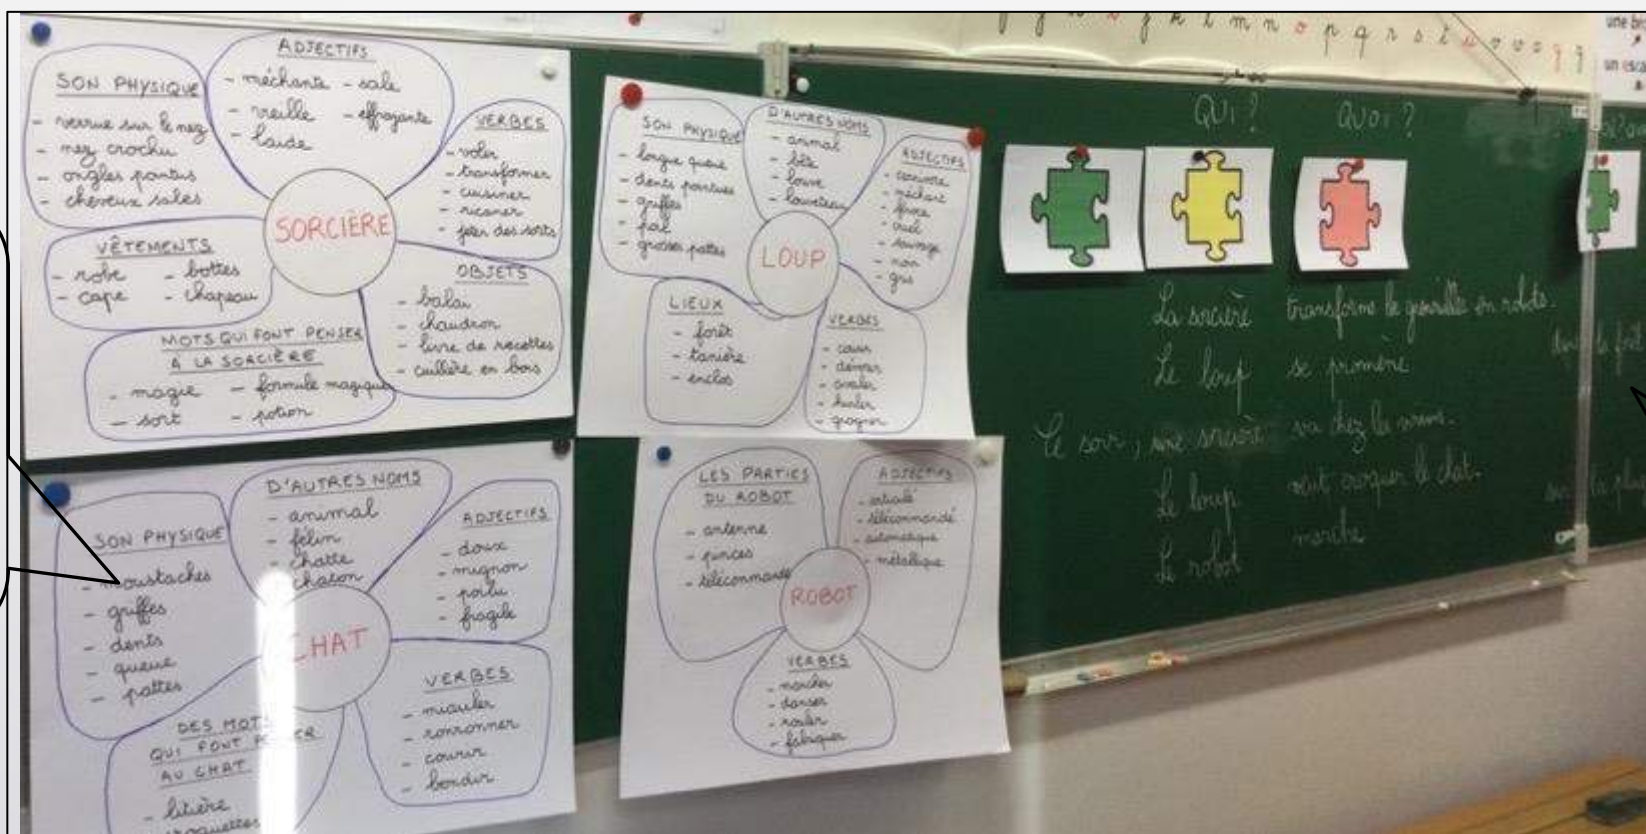 SORCIÈRE
SON PHYSIQUE
- verrue sur le nez
- nez crochu
- ongles pointus
- cheveux sales
ADJECTIFS
- méchante - sale
- vieille - effrayante
- laide
VERBES
- voler
- transformer
- cuisiner
- ricaner
- jeter des sorts
VÊTEMENTS
- robe - bottes
- cape - chapeau
OBJETS
- balai
- chaudron
- livre de recettes
- cuillère en bois
MOTS QUI FONT PENSER
A LA SORCIÈRE
- magie - formule magique
- sort - potion
LOUP
SON PHYSIQUE
- longue queue
- dents pointues
- griffes
- poil
- grosses pattes
D'AUTRES NOMS
- animal
- bête
- louve
- louveteau
ADJECTIFS
- carnivore
- méchant
- féroce
- cruel
- sauvage
- noir
- gris
LIEUX
- forêt
- tanière
- enclos
VERBES
- courir
- dévorer
- avaler
- hurler
- grogner
CHAT
SON PHYSIQUE
- moustaches
- griffes
- dents
- queue
- pattes
D'AUTRES NOMS
- animal
- félin
- chatte
- chaton
ADJECTIFS
- doux
- mignon
- poilu
- fragile
VERBES
- miauler
- ronronner
- courir
- bondir
DES MOTS
QUI FONT
AU CHAT
- litière
ROBOT
LES PARTIES
DU ROBOT
- antenne
- pinces
- télécommande
ADJECTIFS
- articulé
- télécommandé
- automatique
- métallique
VERBES
- marcher
- danser
- rouler
- fabriquer
j k l m n o p q r s t u v
une
un
QUI ? QUOI ?
La sorcière transforme la en robots.
Le loup se promène dans la forêt
Le soir, une sorcière va chez la
Le loup veut croquer le chat.
Le robot marche